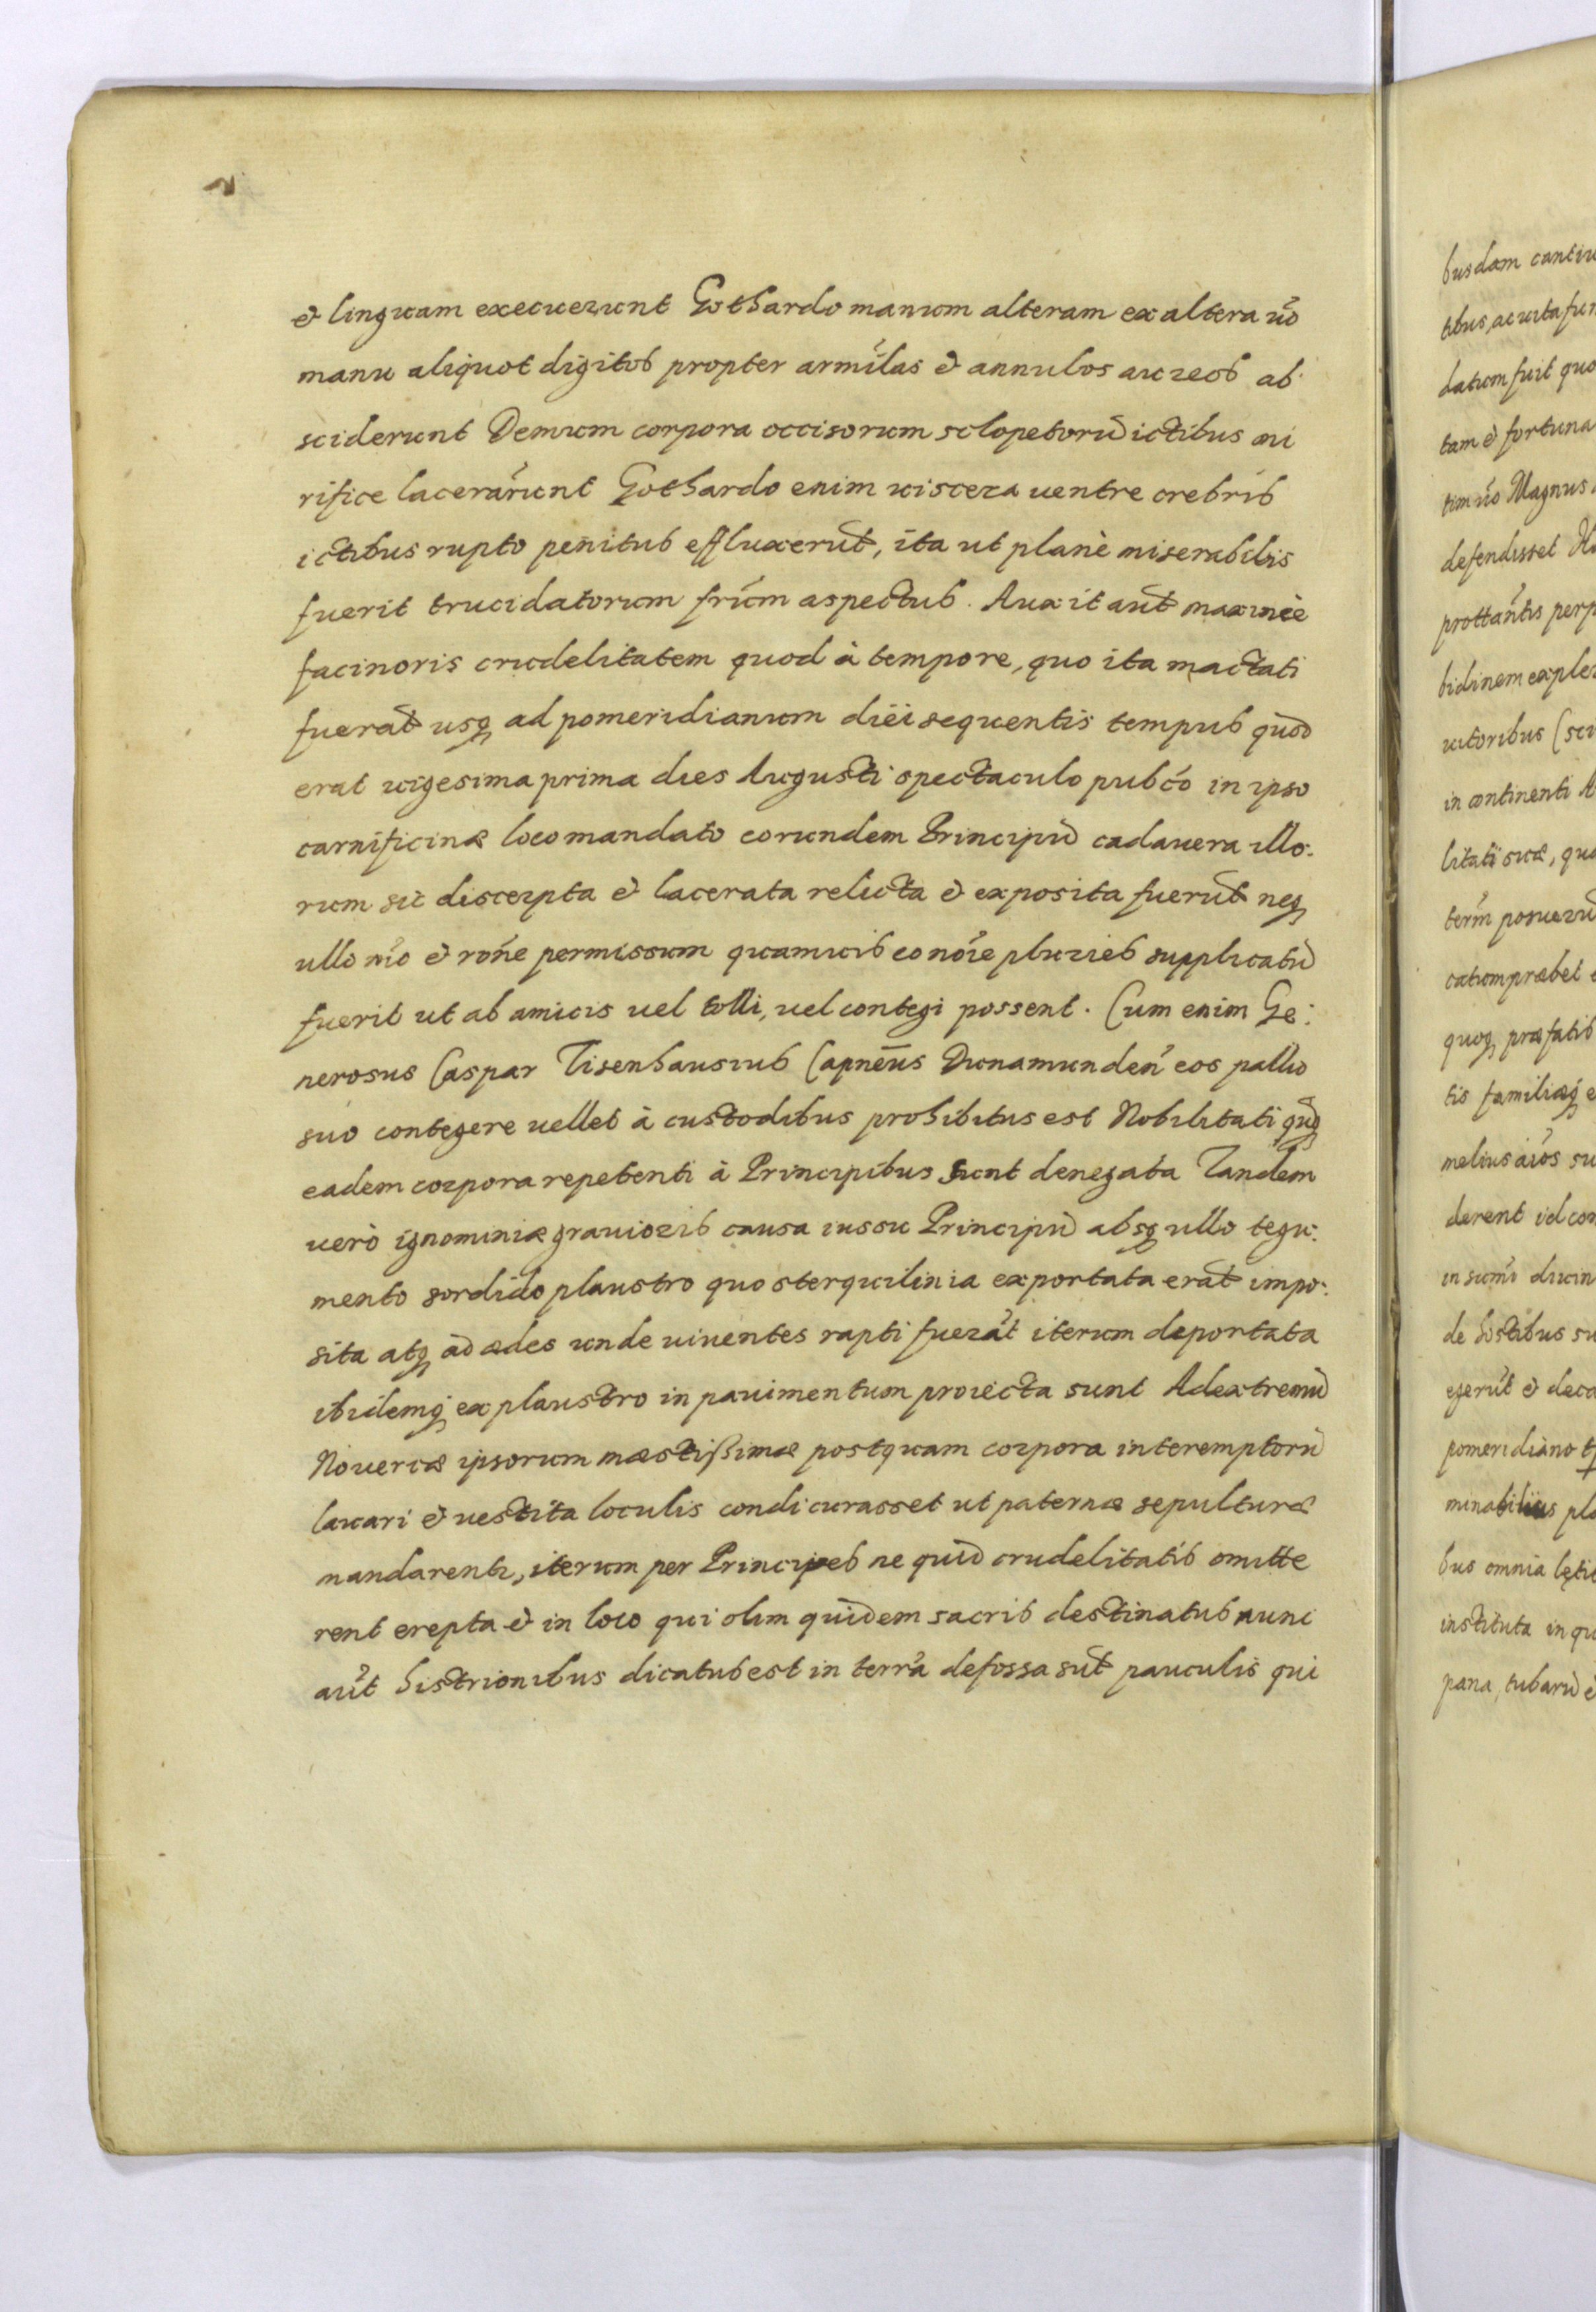 & linguam execuerunt Gothardo manum alteram ex altera uo᷃
manu aliquot digitos propter armilas & annulos aureos ab
sciderunt Demum corpora occisorum sclopetorũ ictibus mi
rifice lacerârunt Gothardo enim uiscera uentre crebris
ictibus rupto penitus effluxerũt, ita ut planè miserabilis
fuerit trucidatorum frũm aspectus. Auxit aũt maximè
facinoris crudelitatem quod à tempore, quo ita mactati
fuerãt usq ad pomeridianum diei sequentis tempus quod
erat uigesima prima dies Augusti spectaculo pubco in ipso
carnificinæ loco mandato eorundem Principũ cadauera illo:
rum sic discerpta & lacerata relicta & exposita fuerũt neq
ullo mo & rone permissum quamuis eo noie pluries supplicatũ
fuerit ut ab amicis uel tolli, uel contegi possent. Cum enim Ge:
nerosus Caspar Tisenhausius Capneus Dunamunden eos pallio
suo contegere uellet à custodibus prohibitus est Nobilitati quoq
eadem corpora repetenti à Principibus sunt denegata Tandem
uerò ignominiæ grauioris causa iussu Principũ absq ullo tegu:
mento sordido plaustro quo sterquilinia exportata erãt impo:
sita atq ad ædes unde uiuentes rapti fuerãt iterum deportata
ibidemq ex plaustro in pauimentum proiecta sunt Ad extremũ
Nouercæ ipsorum mæstißimæ postquam corpora interemptorũ
lauari & uestita loculis condi curasset ut paternæ sepulturæ
mandarentr, iterum per Principes ne quid crudelitatis omitte
rent erepta & in loco qui olim quidem sacris destinatus nunc
aũt histrionibus dicatus est in terra defossa sũt pauculis qui
busdam
tibus, ac uita
datum fuit
tam & fortuna
tim uo Magnus
defendisset
bidinem
in continenti
litati suæ,
catum præbet
quoq præfatis
tis familiæq
melius aios
derent uel
de hostibus
egerũt &
pomeridiano
bus omnia
instituta in
pana, tubarũ &